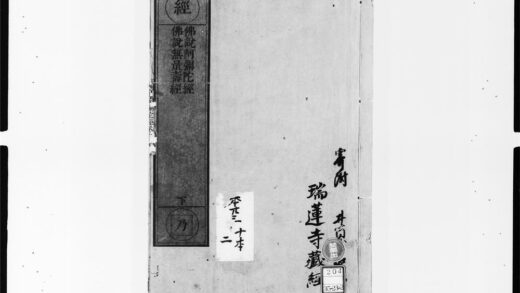 經
佛說阿彌陀經
佛說無量壽經
下
乃
十本
二
寄附
瑞蓮寺藏經
204